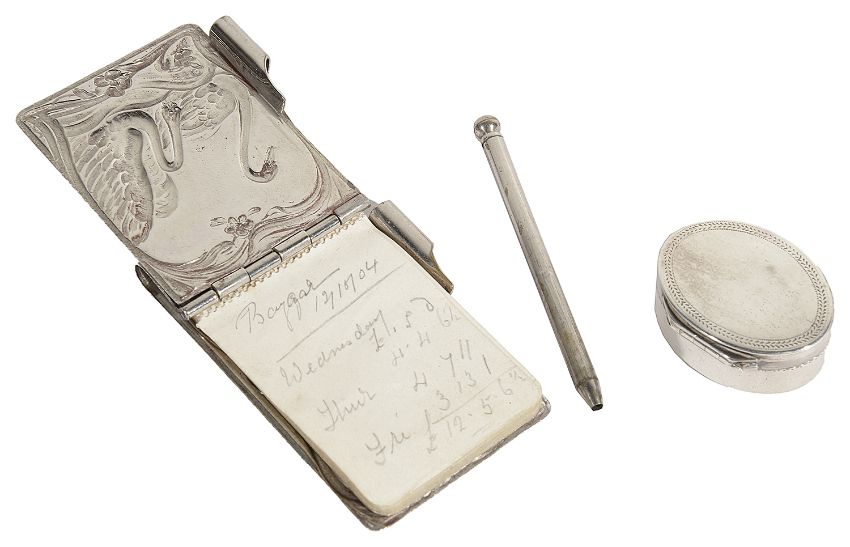 Bazaar
12/10/04
£. s D
Wednesday 4. 4 6½
Thur 4. 7 11
Fri 3 13 1
£12. 5. 6½